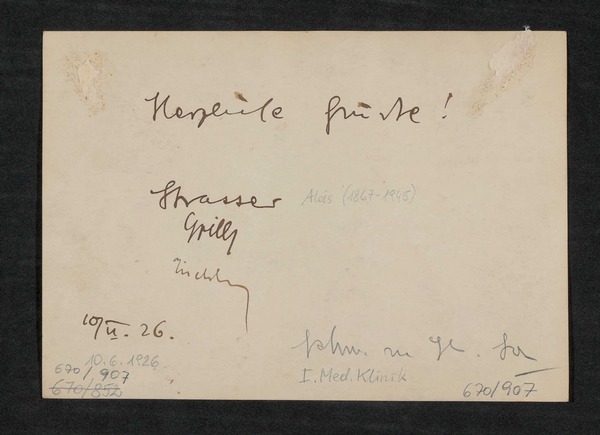 Herzliche Grüsse!
Strasser Alois (1867-1945)
Grill
10/II. 26.
10.6.1926
670/907
670/852
I. Med. Klinik
670/907